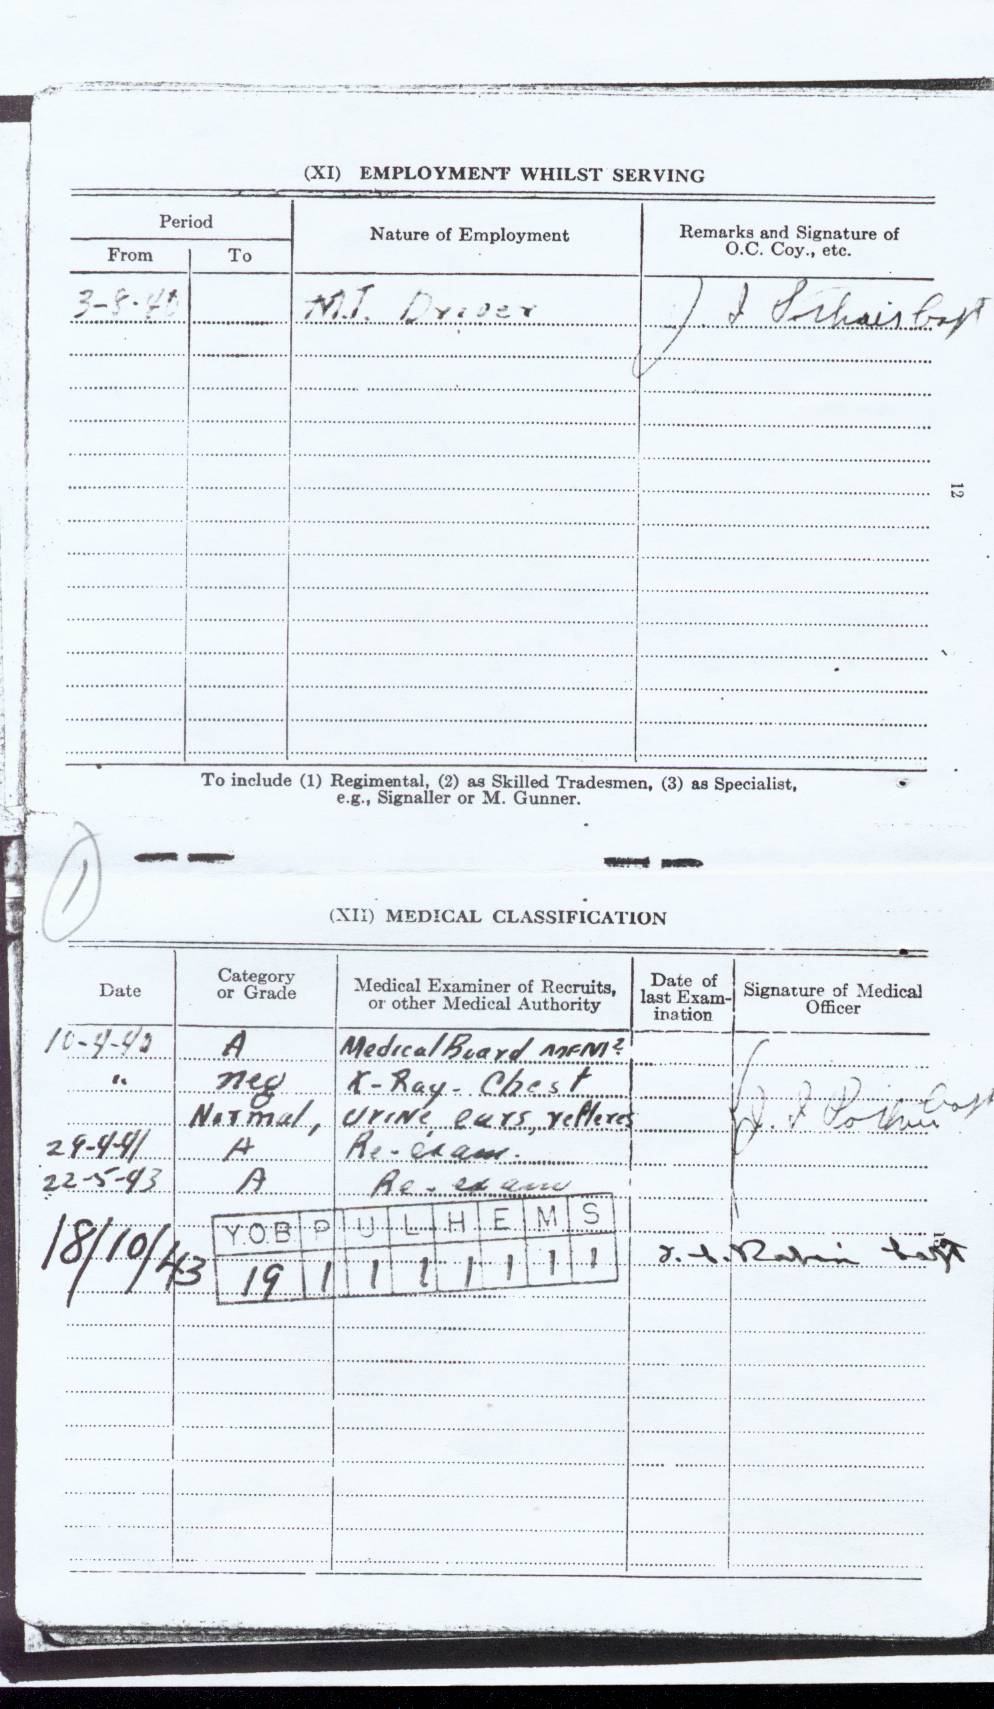 (XI) EMPLOYMENT WHILST SERVING
Period
Nature of Employment
Remarks and Signature of
O.C. Coy., etc.
From
To
3-8-40
M.T. Driver
J. I Capt
12
To include (1) Regimental, (2) as Skilled Tradesmen, (3) as Specialist,
e.g., Signaller or M. Gunner.
1
(XII) MEDICAL CLASSIFICATION
Date
Category
or Grade
Medical Examiner of Recruits,
or other Medical Authority
Date of
last Exam-
ination
Signature of Medical
Officer
10-4-40 A Medical Board
" neg X-Ray - Chest
Normal, urine ears, reflexes
J. I Capt
29-4-41 A Re-exam.
22-5-43 A Re-exam
Y.O.B P U L H E M S
18/10/43 19 1 1 1 1 1 1 1 Capt